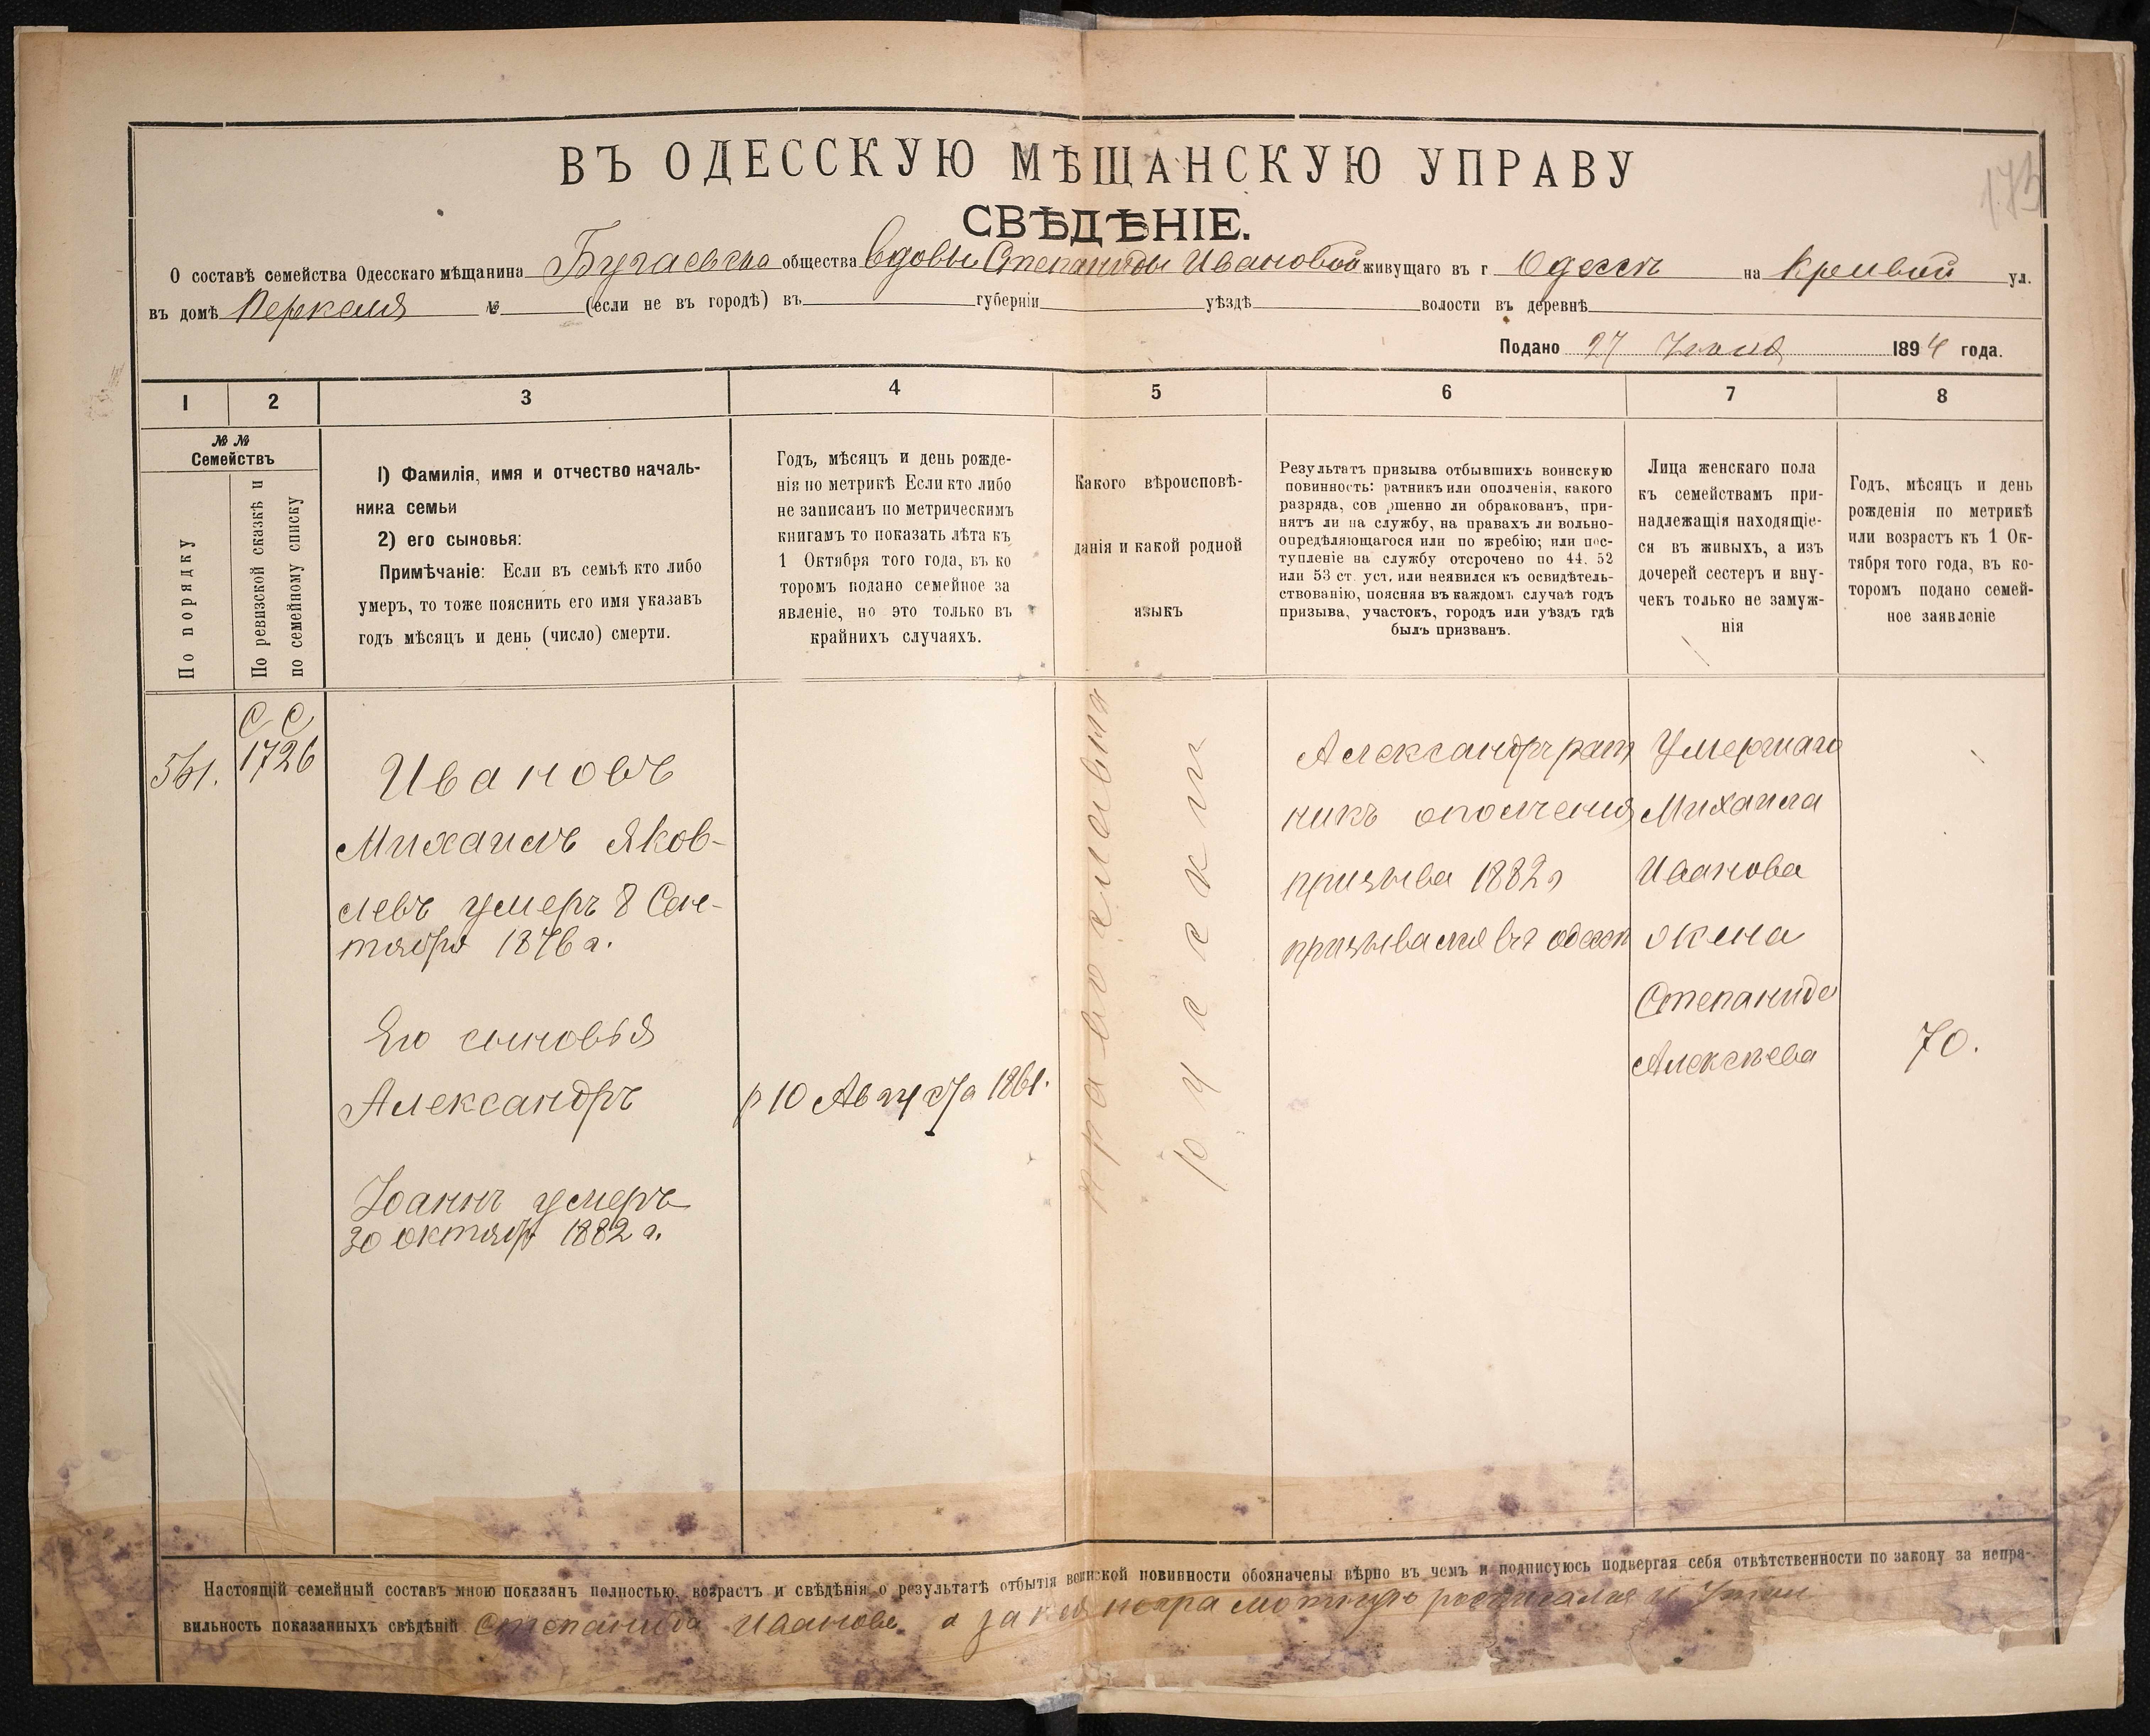 ВЪ ОДЕССКУЮ МѢЩАНСКУЮ УПРАВУ
СВѢДѢНІЕ.
О составѣ семейства Одесскаго мѣщанина общества вдовы Степаниды Ивановой живущаго въ г Одессѣ на Кривой ул.
въ домѣ Перкеля № (если не въ городѣ) въ губерніи уѣздѣ волости въ деревнѣ
Подано 27 1894 года.
1 2 3 4 5 6 7 8
№ №
Семействъ
По порядку
По ревизской сказкѣ и
по семейному списку
1) Фамилія, имя и отчество началь-
ника семьи
2) его сыновья:
Примѣчаніе: Если въ семьѣ кто либо
умеръ, то тоже пояснить его имя указавъ
годъ мѣсяцъ и день (число) смерти.
Годъ, мѣсяцъ и день рожде-
нія по метрикѣ Если кто либо
не записанъ по метрическимъ
книгамъ то показать лѣта къ
1 Октября того года, въ ко
торомъ подано семейное за
явленіе, но это только въ
крайнихъ случаяхъ.
Какого вѣроисповѣ-
данія и какой родной
языкъ
Результатъ призыва отбывшихъ воинскую
повинность: ратникъ или ополченія, какого
разряда, сов ршенно ли обракованъ, при-
нятъ ли на службу, на правахъ ли вольно-
опредѣляющагося или по жребію; или пос-
тупленіе на службу отсрочено по 44. 52
или 53 ст. уст. или неявился къ освидѣтель-
ствованію, поясняя въ каждомъ случаѣ годъ
призыва, участокъ, городъ или уѣздъ гдѣ
былъ призванъ.
Лица женскаго пола
къ семействамъ при-
надлежащія находящіе-
ся въ живыхъ, а изъ
дочерей сестеръ и вну-
чекъ только не замуж-
нія
Годъ, мѣсяцъ и день
рожденія по метрикѣ
или возрастъ къ 1 Ок-
тября того года, въ ко-
торомъ подано семей-
ное заявленіе
С С
1726
Ивановъ
Михаилъ Яков-
левъ умеръ 8 Сен-
тября 1876 г.
Его сыновья
Александръ
р 10 Августа 1861.
Іоаннъ умеръ
30 октябр 1882 г.
православный
русскій
Александръ рат
никъ ополченія
призыва 1882 г
призывался въ одессѣ
Умершаго
Михаила
Иванова
жена
Степанида
Алексѣева
70.
Настоящій семейный составъ мною показанъ полностью, возрастъ и свѣдѣнія о результатѣ отбытія воинской повинности обозначены вѣрно въ чемъ и подписуюсь подвергая себя отвѣтственности по закону за непра-
вильность показанныхъ свѣдѣній Степанида Иванова а за нея неграмотную росписался